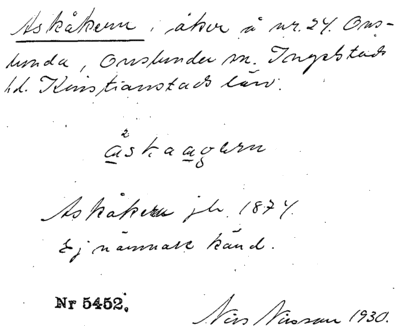 Askåkern, åker å nr. 24. Ons-
lunda, Onslunda sn. Ingelstads
hd. Kristianstads län.
2
åskaagern
Askåkern jb. 1874.
Ej närmare känd.
Nr 5452.
Nils Nilsson 1930.